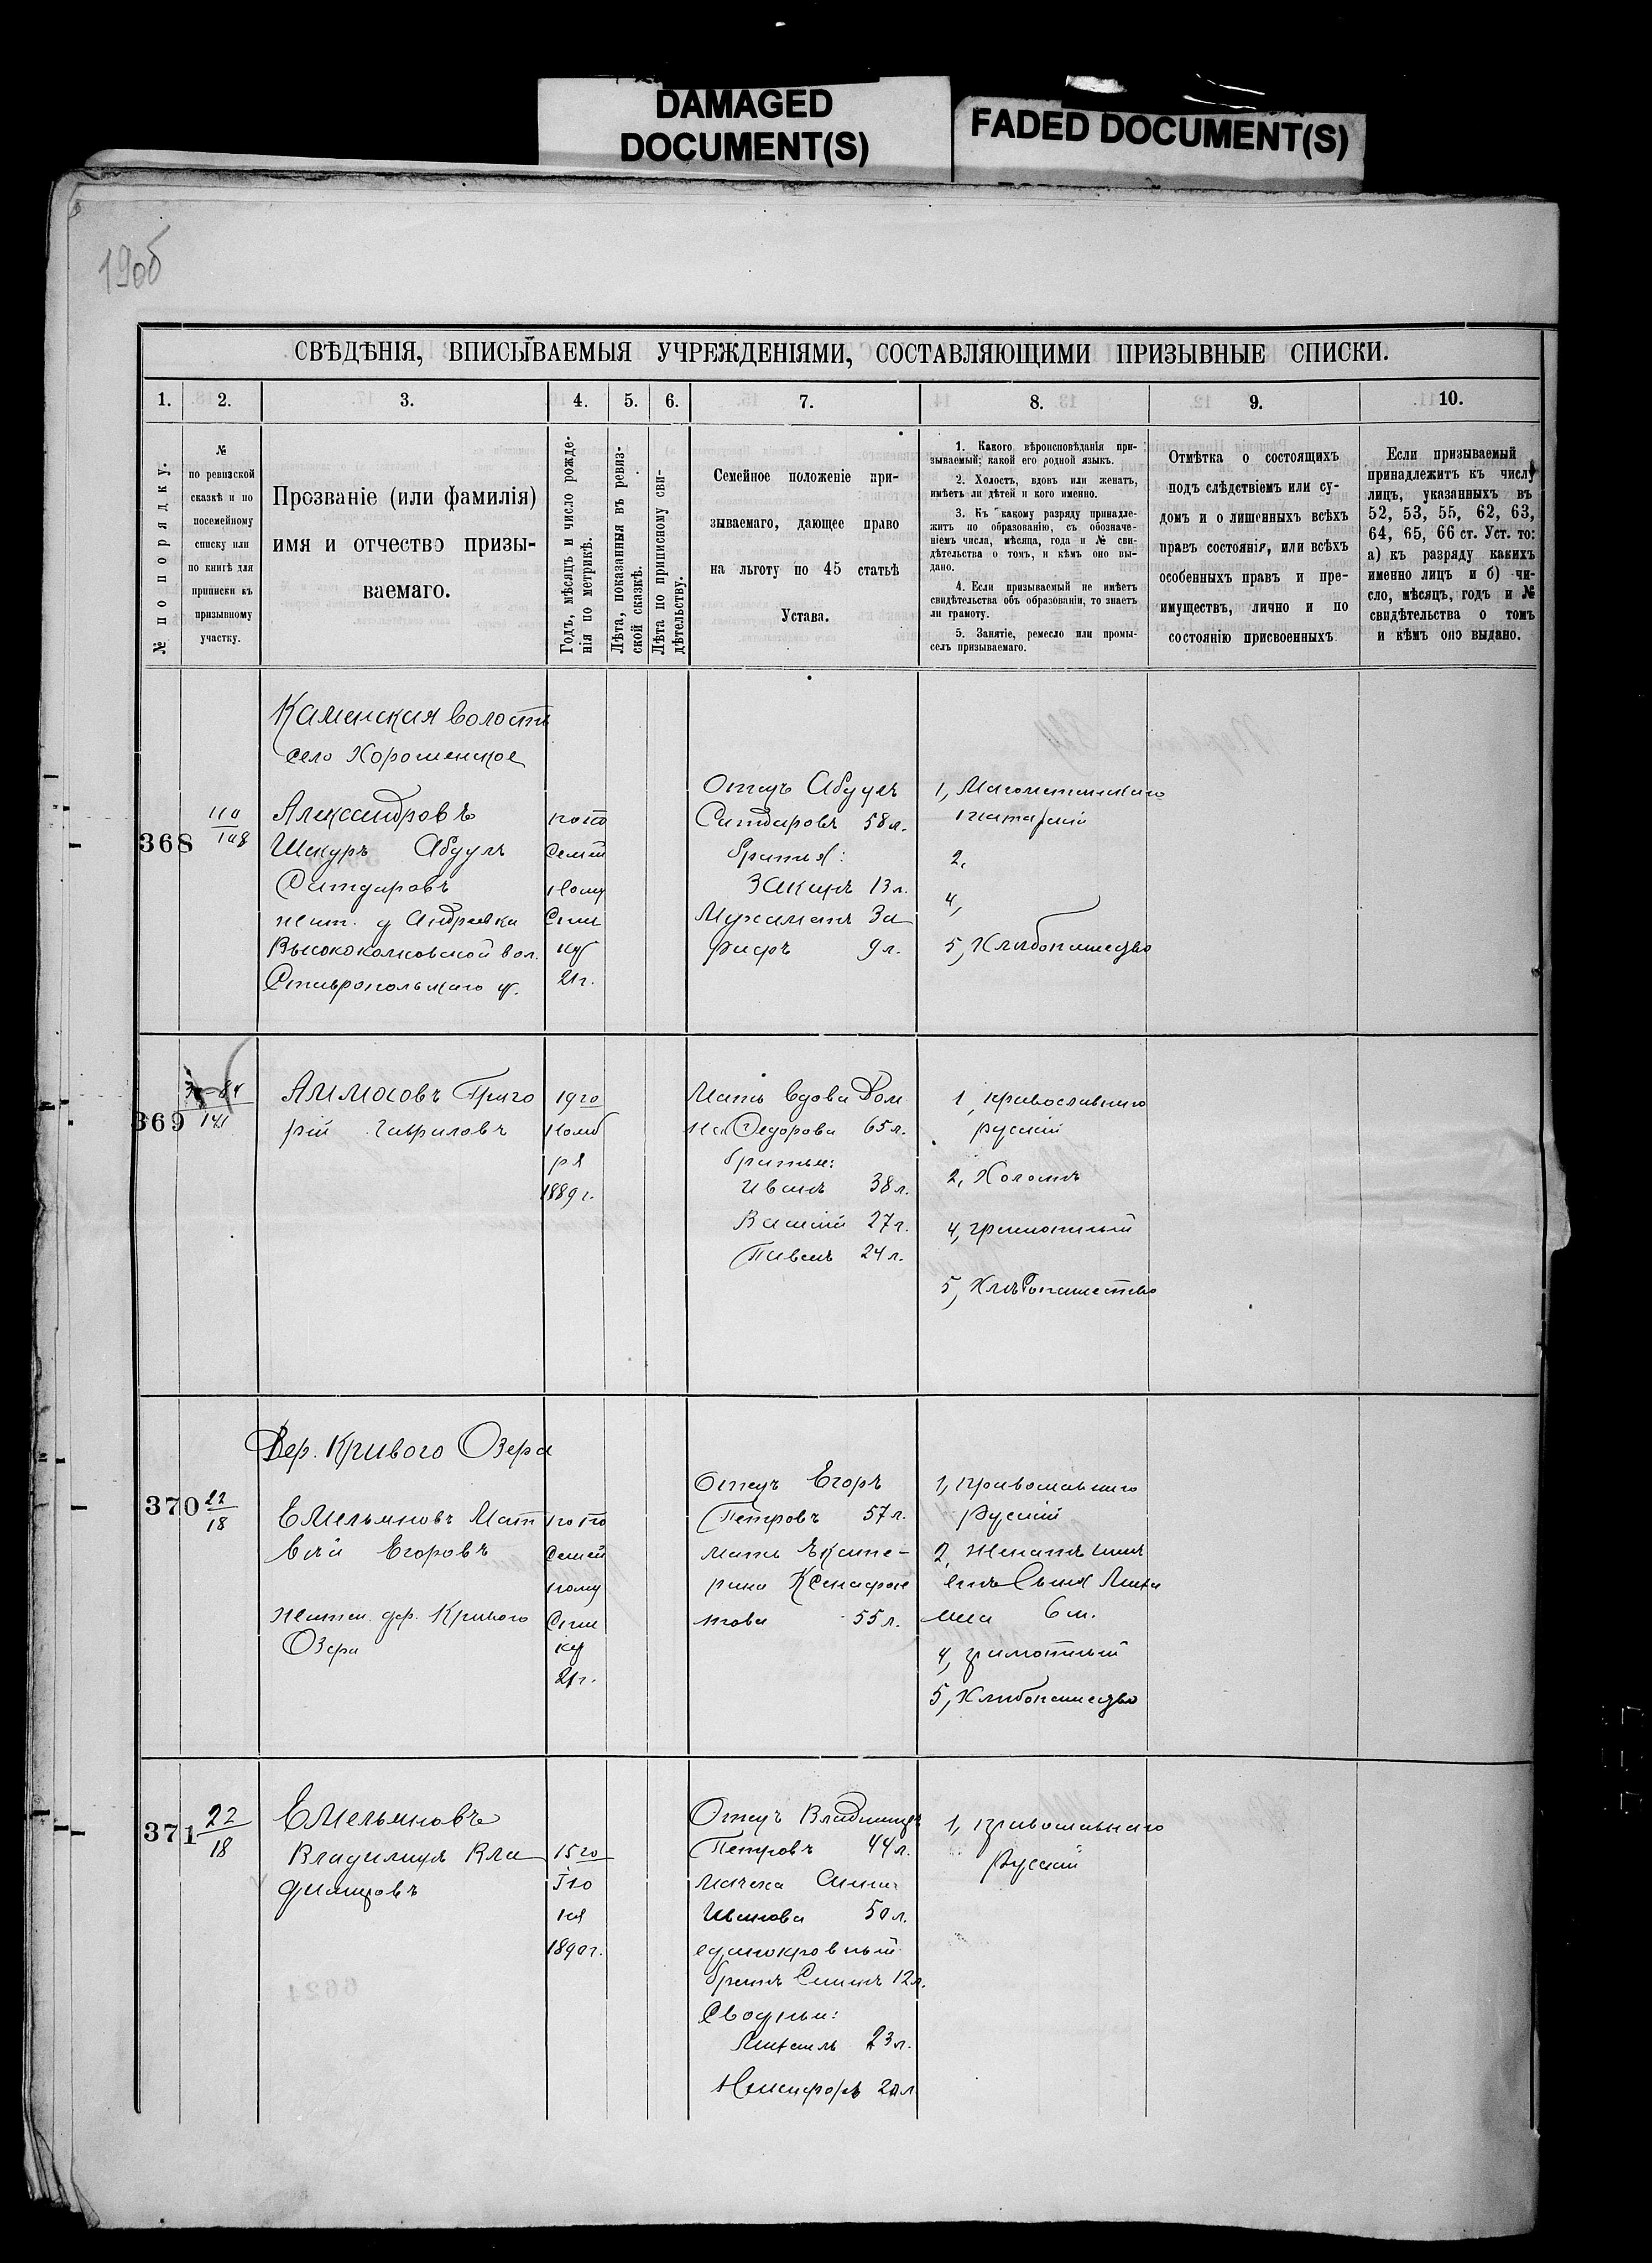 DAMAGED
DOCUMENT(S)
FADED DOCUMENT(S)
190б
СВѢДѢНІЯ, ВПИСЫВАЕМЫЯ УЧРЕЖДЕНІЯМИ, СОСТАВЛЯЮЩИМИ ПРИЗЫВНЫЕ СПИСКИ.
1. 2. 3. 4. 5. 6. 7. 8. 9. 10.
№ по порядку.
№
по ревизской
сказкѣ и по
посемейному
списку или
по книгѣ для
приписки къ
призывному
участку.
Прозваніе (или фамилія)
имя и отчество призы-
ваемаго.
Годъ, мѣсяцъ и число рожде-
нія по метрикѣ.
Лѣта, показанныя въ ревиз-
ской сказкѣ.
Лѣта по приписному сви-
дѣтельству.
Семейное положеніе при-
зываемаго, дающее право
на льготу по 45 статьѣ
Устава.
1. Какого вѣроисповѣданія при-
зываемый; какой его родной языкъ.
2. Холостъ, вдовъ или женатъ,
имѣетъ ли дѣтей и кого именно.
3. Къ какому разряду принадле-
житъ по образованію, съ обозначе-
ніемъ числа, мѣсяца, года и № сви-
дѣтельства о томъ, и кѣмъ оно вы-
дано.
4. Если призываемый не имѣетъ
свидѣтельства объ образованіи, то знаетъ
ли грамоту.
5. Занятіе, ремесло или промы-
селъ призываемаго.
Отмѣтка о состоящихъ
подъ слѣдствіемъ или су-
домъ и о лишенныхъ всѣхъ
правъ состоянія, или всѣхъ
особенныхъ правъ и пре-
имуществъ, лично и по
состоянію присвоенныхъ
Если призываемый
принадлежитъ къ числу
лицъ, указанныхъ въ
52, 53, 55, 62, 63,
64, 65, 66 ст. Уст. то:
а) къ разряду какихъ
именно лицъ и б) чи-
сло, мѣсяцъ, годъ и №
свидѣтельства о томъ
и кѣмъ оно выдано.
Каменская волость
село Хорошенское
368
110
108
Александровъ
Шекуръ Абдулъ
Ситдаровъ
жит. д Андреевка
Высококолковской вол.
Ставропольскаго у.
по по
семей
ному
спи
ку
21 г.
Отецъ Абдулъ
Ситдаровъ 58 л.
братья:
Закиръ 13 л.
Мухаметъ За
рифъ 9 л.
1, Магометанскаго
татарскій
2,
4,
5, Хлѣбопашество
369
141
Алмасовъ Григо
рій Гавриловъ
19го
Нояб
ря
1889 г.
Мать вдова Дом
на Ѳедорова 65 л.
братья:
Иванъ 38 л.
Василій 27 л.
Павелъ 24 л.
1, православнаго
русскій
2, Холостъ
4, грамотный
5, Хлѣбопашество
Дер. Кривого Озера
370
22
18
Емельяновъ Мат
вѣй Егоровъ
жител. дер. Кривого
Озера
по по
семей
ному
спи
ку
21 г.
Отецъ Егоръ
Петровъ 57 л.
мать Екате-
рина Ксенофон
това 55 л.
1, православнаго
русскій
2, женатъ имѣ
етъ сына Миха
ила 6 м.
4, грамотный
5, Хлѣбопашество
371
22
18
Емельяновъ
Владиміръ Вла
диміровъ
15го
Ію
ля
1890 г.
Отецъ Владиміръ
Петровъ 44 л.
мачеха Анна
Иванова 50 л.
единокровный
братъ 12 л.
Сводные:
Михаилъ 23 л.
Никифоръ 20 л
1, православнаго
русскій